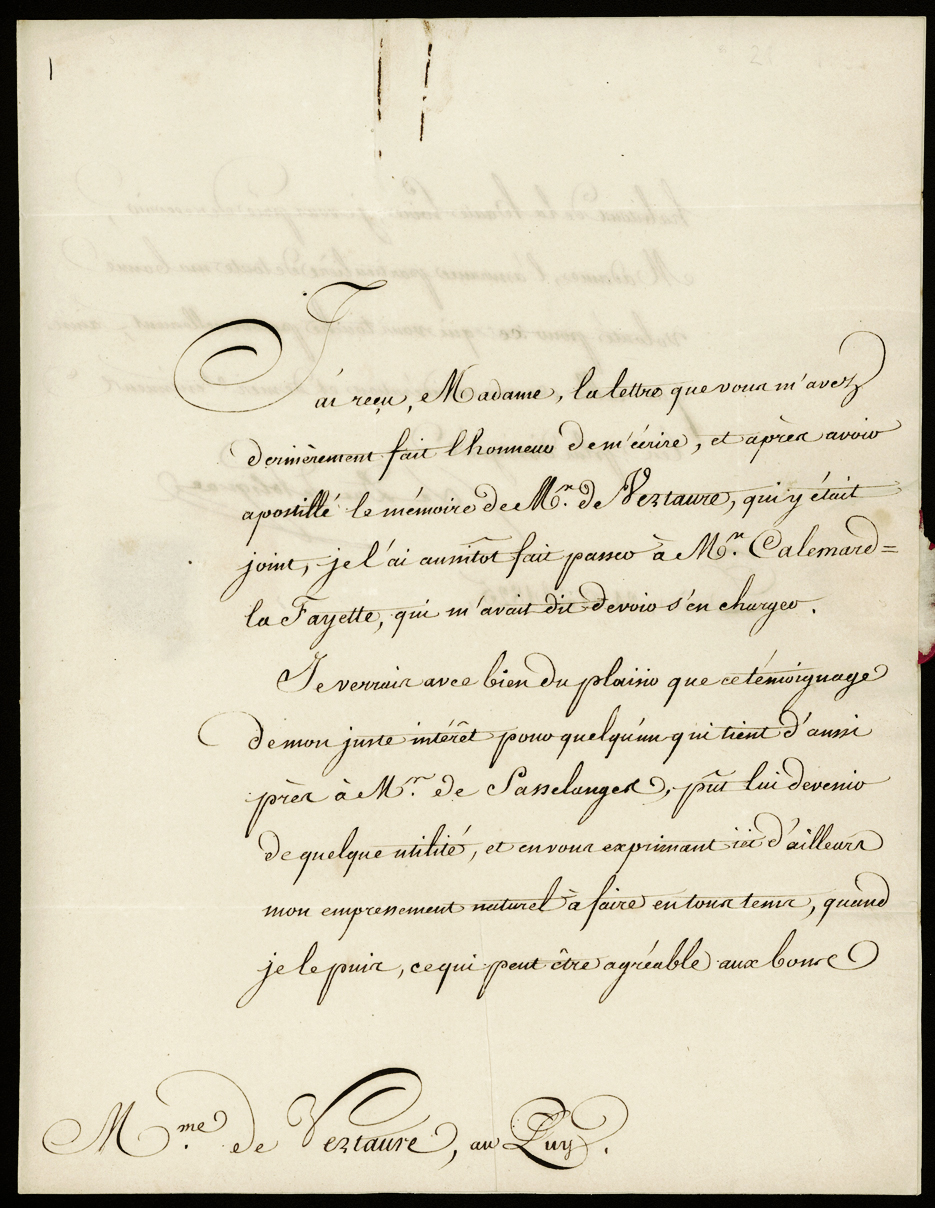 J'ai reçu, Madame, la lettre que vous m'avez
dernièrement fait l'honneur de m'écrire, et après avoir
apostillé le mémoire de Mr. de Vertaure, qui y était
joint, je l'ai aussitôt fait passer à Mr. Calemard=
la Fayette, qui m'avait dit devoir s'en charger.
Je verrais avec bien du plaisir que ce témoignage
de mon juste intérêt pour quelqu'un qui tient d'aussi
près à Mr. de Passelanges, pût lui devenir
de quelque utilité, et en vous exprimant ici d'ailleurs
mon empressement naturel à faire en tous tems, quand
je le puis, ce qui peut être agréable aux bons
Mme. de Vertaure, au Puy.